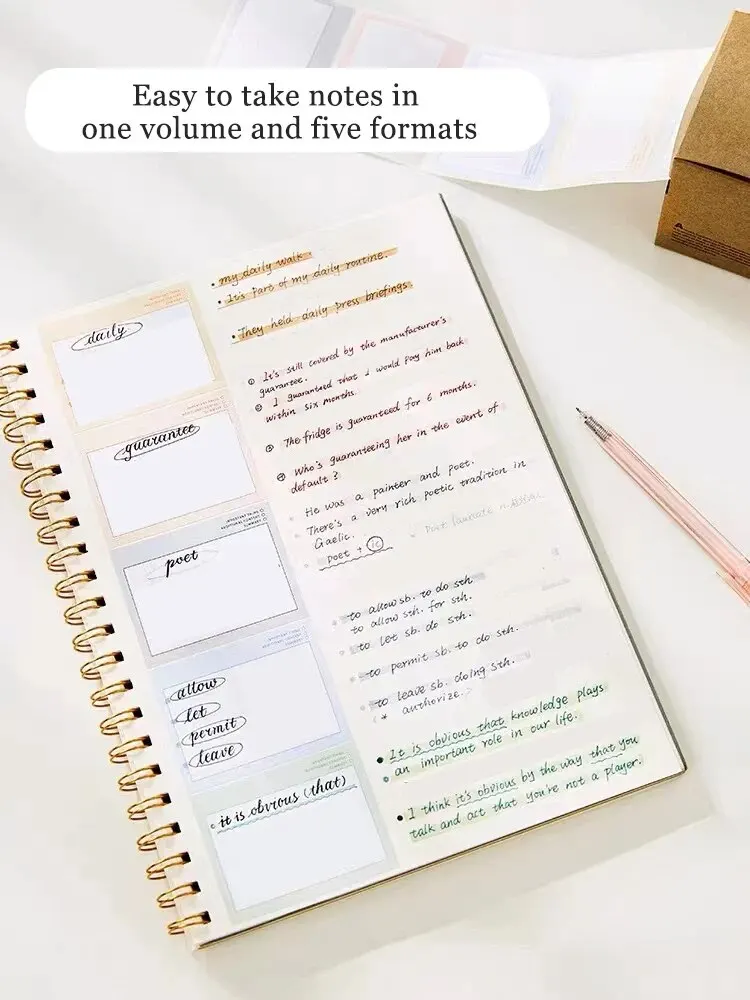 Easy to take notes in
one volume and five formats
daily
• my daily walk.
• It's part of my daily routine.
• They held daily press briefings.
guarantee
① It's still covered by the manufacturer's
guarantee.
② I guaranteed that I would pay him back
within six months.
③ The fridge is guaranteed for 6 months.
④ Who's guaranteeing her in the event of
default?
poet
He was a painter and poet.
There's a very rich poetic tradition in
Gaelic.
poet + ic
Poet laureate
allow
let
permit
leave
to allow sb. to do sth.
to allow sth. for sth.
to let sb. do sth.
to permit sb. to do sth.
to leave sb. doing sth.
(* authorize.)
it is obvious (that)
• It is obvious that knowledge plays
an important role in our life.
• I think it's obvious by the way that you
talk and act that you're not a player.